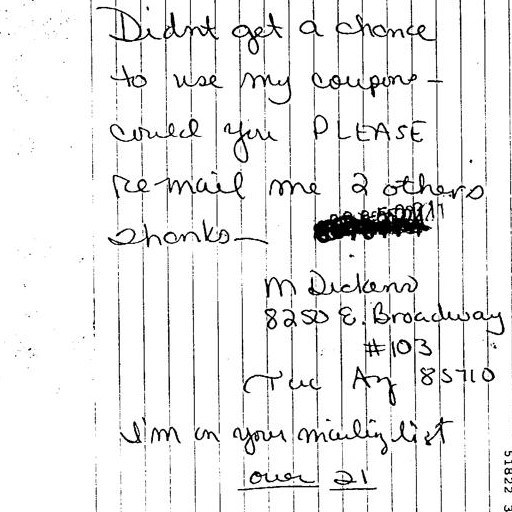 Didnt get a chance
to use my coupons -
could you PLEASE
re-mail me 2 others
Thanks -
M Dickens
8250 E. Broadway
#103
Tuc Az 85710
I'm on your mailing list
over 21
51822 3